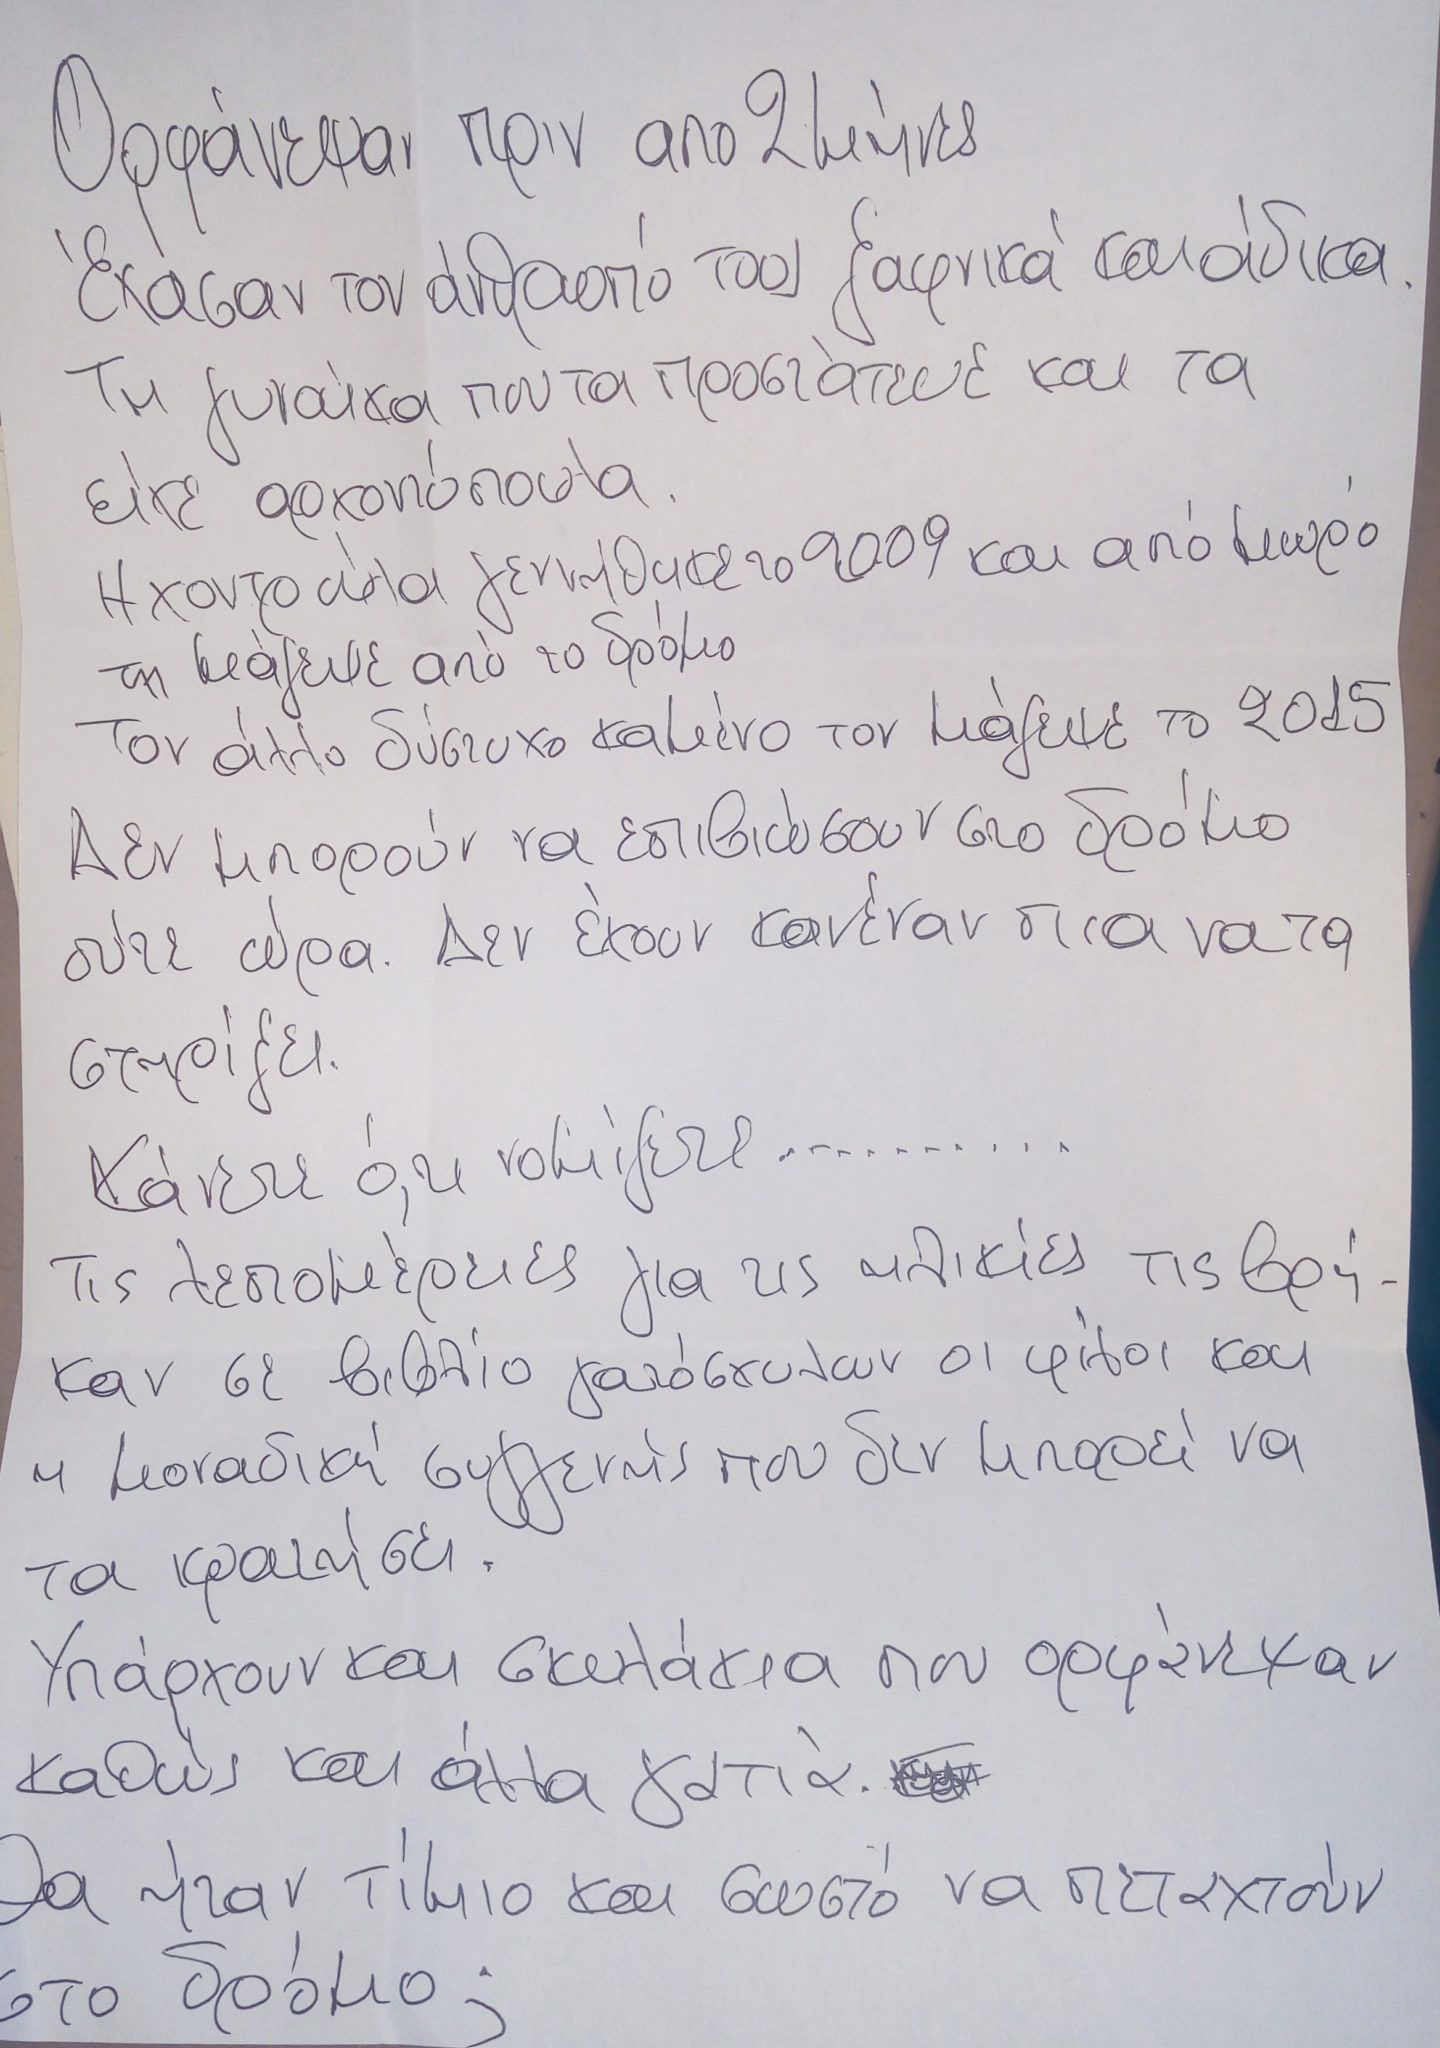 Ορφάνεψαν πριν απο 2 μήνες
Έχασαν τον άνθρωπό τους ξαφνικά και άδικα.
Τη γυναίκα που τα προστάτευε και τα
είχε αρχοντόπουλα.
Η χοντρούλα γεννήθηκε το 2009 και από μωρό
τη μάζεψε από το δρόμο
Τον άλλο δύστυχο καμένο τον μάζεψε το 2015
Δεν μπορούν να επιβιώσουν στο δρόμο
ούτε ώρα. Δεν έχουν κανέναν πια να τα
στηρίξει.
Κάνετε ό,τι νομίζετε...........
Τις λεπτομέρειες για τις ηλικίες τις βρή-
καν σε βιβλίο γατόσκυλων οι φίλοι και
η μοναδική συγγενής που δεν μπορεί να
τα κρατήσει.
Υπάρχουν και σκυλάκια που ορφάνεψαν
καθώς και άλλα γατιά.
Θα ήταν τίμιο και σωστό να πεταχτούν
στο δρόμο;